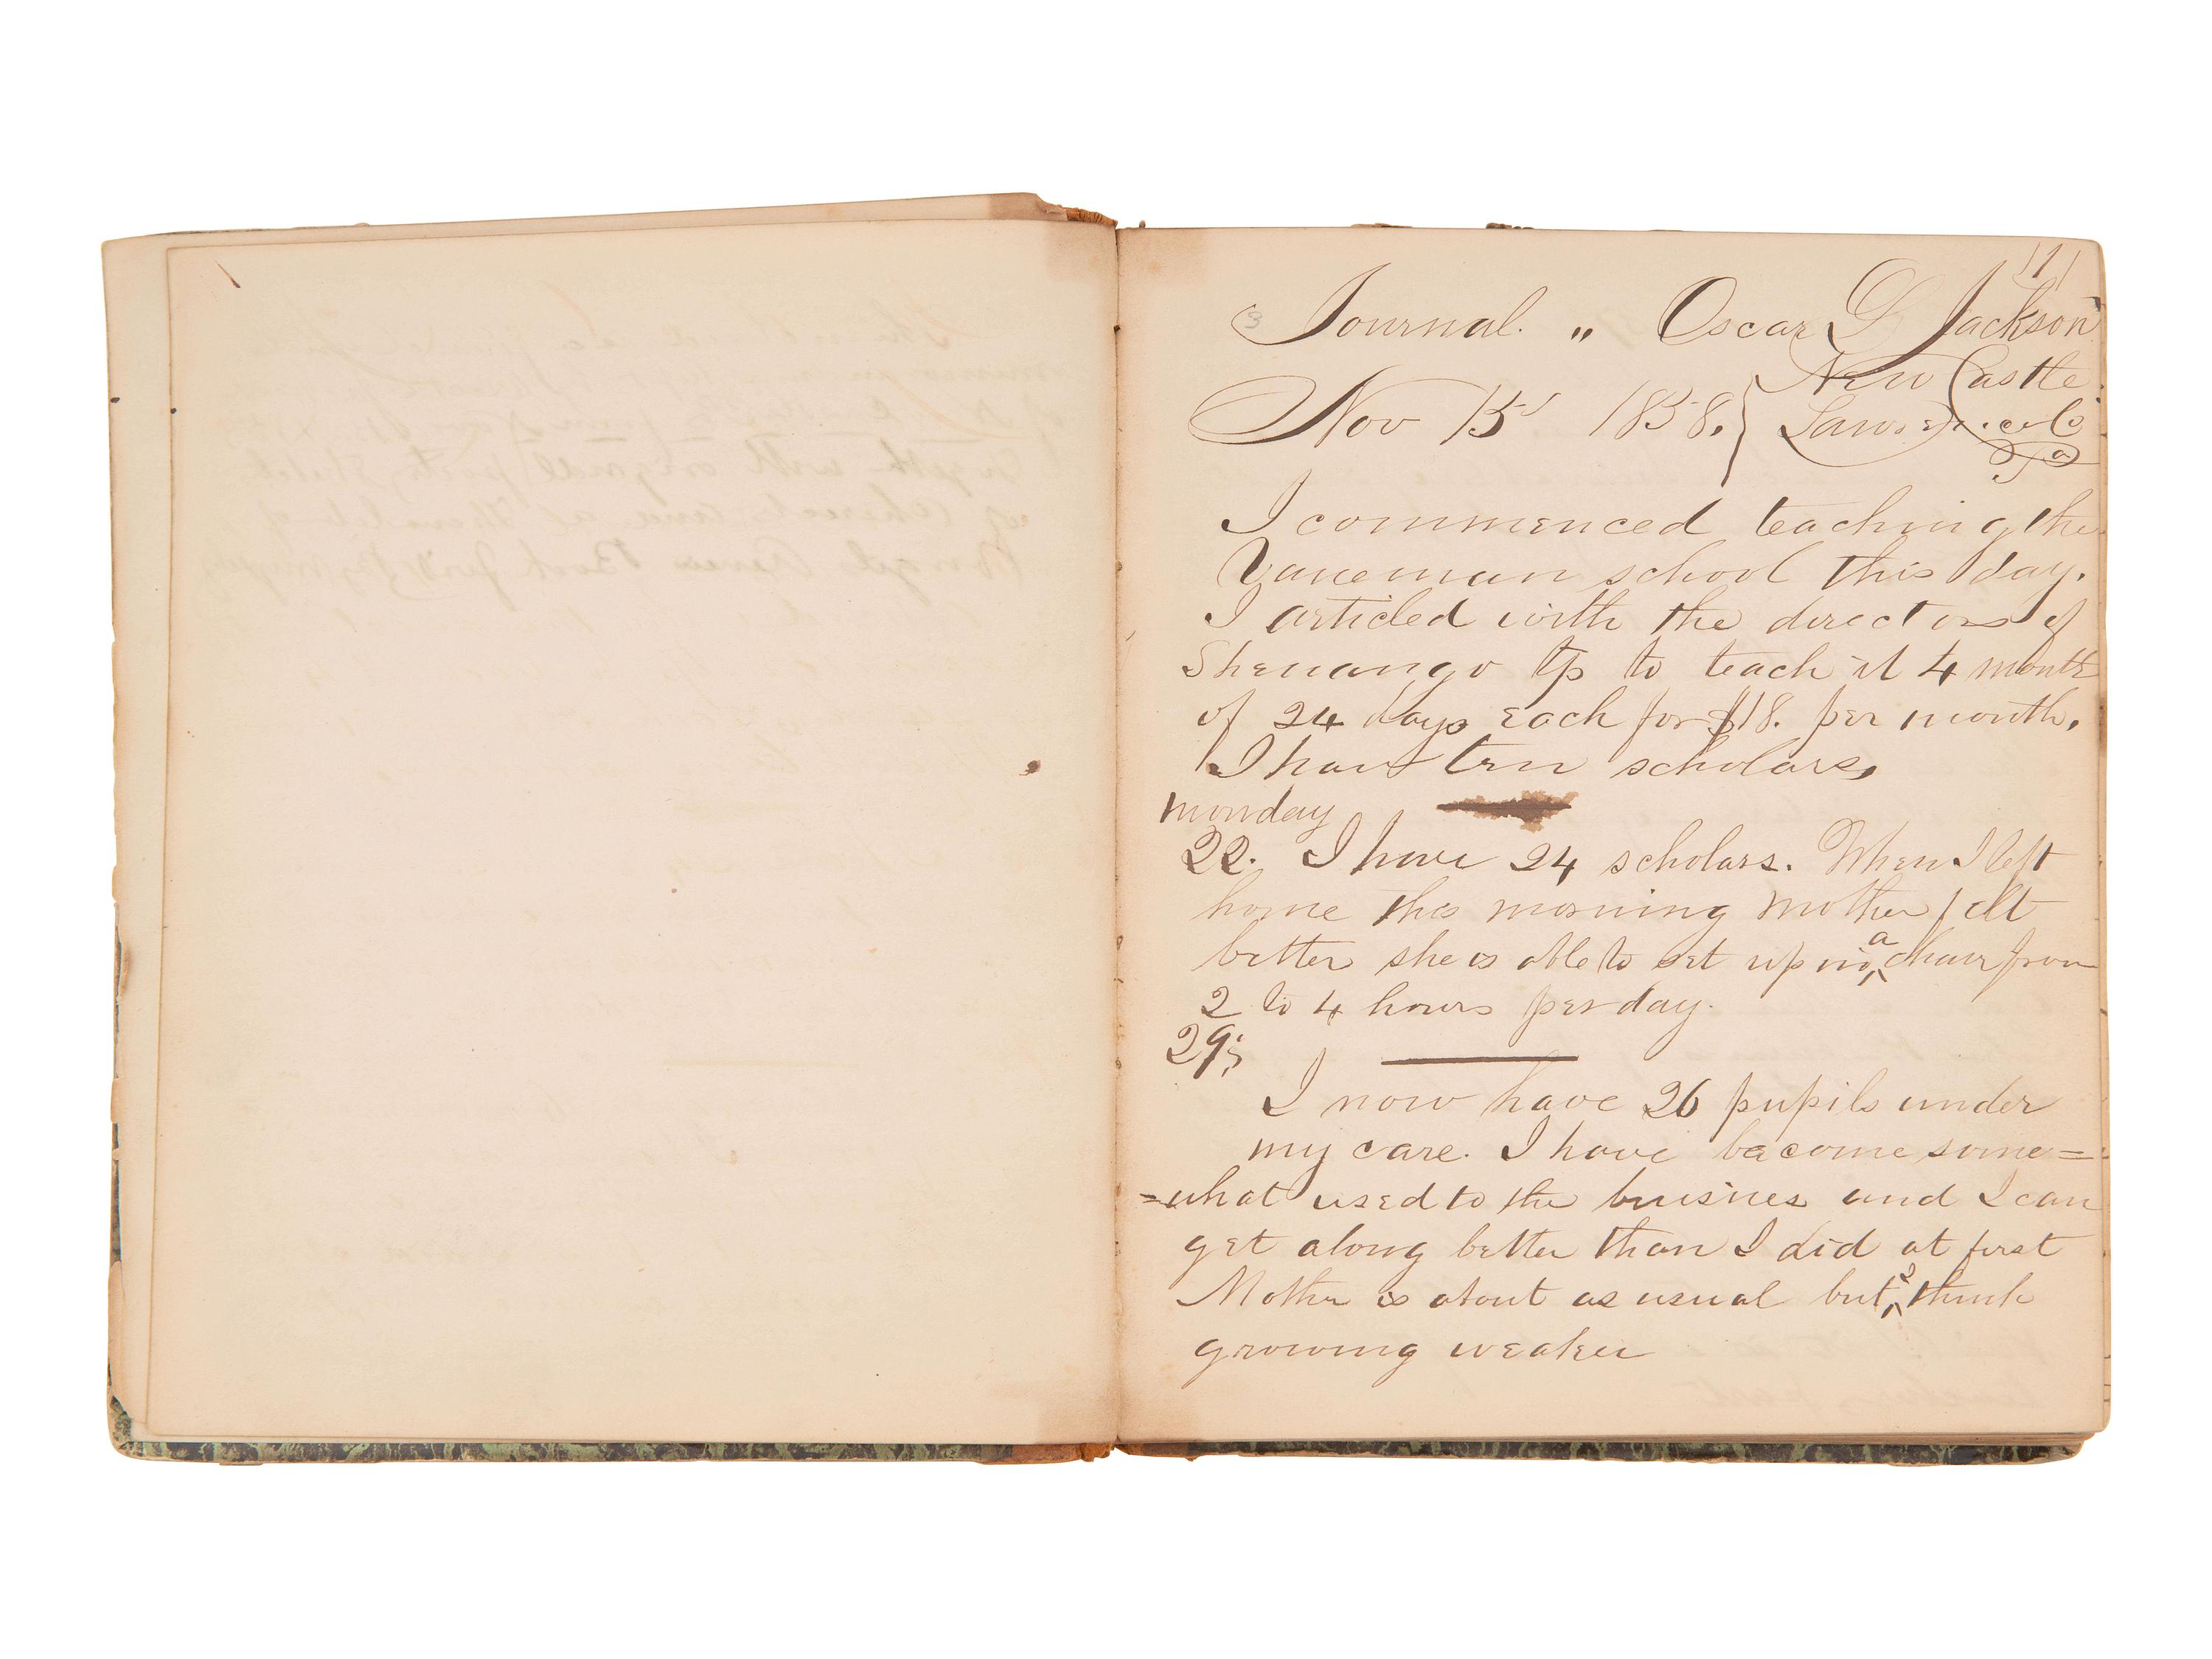 /1/
3 Journal. " Oscar L Jackson
New Castle
Nov 15 1858. } Lawrence Co
Pa
I commenced teaching the
Vaneman school this day.
I articled with the directors of
Shenango tp to teach it 4 month
of 24 days each for $18. per month.
I have ten scholars,
monday
22. I have 24 scholars. When I left
home this morning Mother felt
better she is able to set up in a chair from
2 to 4 hours per day.
29;
I now have 26 pupils under
my care. I have become some=
=what used to the buisnes and I can
get along better than I did at first
Mother is about as usual but I think
growing weaker